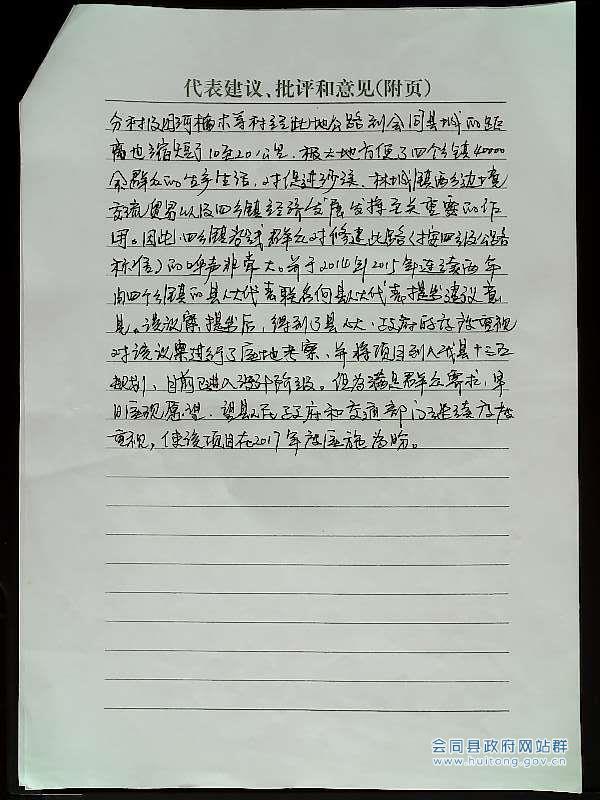 代表建议、批评和意见(附页)
分村及团河楠木等村经此地公路到会同县城的距
离也缩短了10至20公里。极大地方便了四个乡镇40000
余群众的生产生活，对促进沙溪、林城镇两乡边境
交流贸易以及四乡镇经济发展发挥至关重要的作
用。因此，四乡镇沿线群众对修建此路（按四级公路
标准）的呼声非常大。并于2014年2015年连续两年
由四个乡镇的县人大代表联名向县人大代表提出建议意
见。该议案提出后，得到了县人大、政府的高度重视
对该议案进行了实地考察，并将项目列入我县十三五
规划，目前已进入设计阶段。但为满足群众要求，早
日实现愿望。望县人民政府和交通部门继续高度
重视，使该项目在2017年度实施为盼。
会同县政府网站群
www.huitong.gov.cn